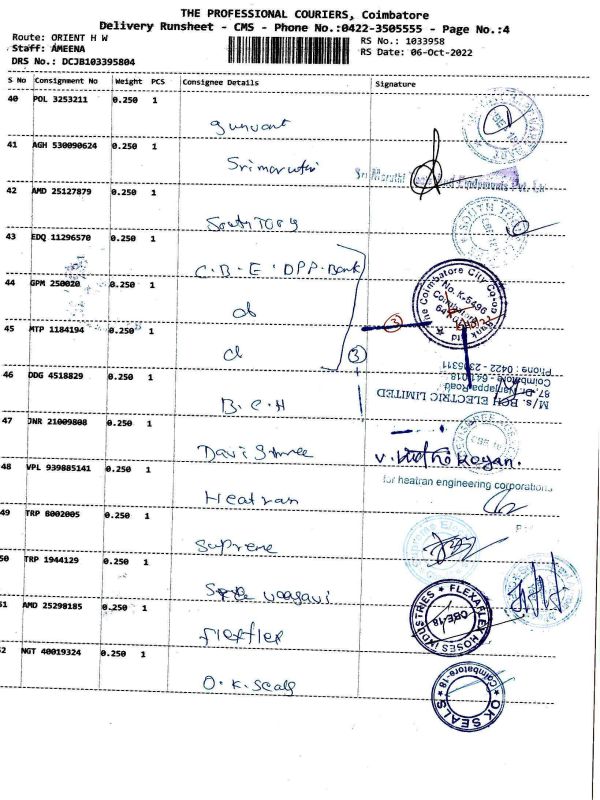 THE PROFESSIONAL COURIERS, Coimbatore
Delivery Runsheet - CMS - Phone No.:0422-3505555 - Page No.:4
Route: ORIENT H W
RS No.: 1033958
Staff: AMEENA
RS Date: 06-Oct-2022
DRS No.: DCJB103395804
S No Consignment No Weight PCS Consignee Details Signature
40 POL 3253211 0.250 1
gunvant
41 AGH 530090624 0.250 1
Srimaruti
Sri Maruthi
42 AMD 25127879 0.250 1
SOUTH TORQ
43 EDQ 11296570 0.250 1
C.B.E. DPP. Bank
44 GPM 250020 0.250 1
The Coimbatore City Co-op Bank Ltd
No. K-5496
3
45 MTP 1184194 0.250 1
3
46 DDG 4518829 0.250 1
B.C.H
M/s. BCH ELECTRIC LIMITED
Coimbatore - 641 018
Phone : 0422 -
47 JNR 21009808 0.250 1
48 VPL 939885141 0.250 1
Heatran
for heatran engineering corporations
49 TRP 8002005 0.250 1
Supreme
50 TRP 1944129 0.250 1
51 AMD 25298185 0.250 1
flexflex
FLEXAFLEX HOSES INDUSTRIES
CBE-18
52 NGT 40019324 0.250 1
O.K. Seals
OK SEALS
Coimbatore-18